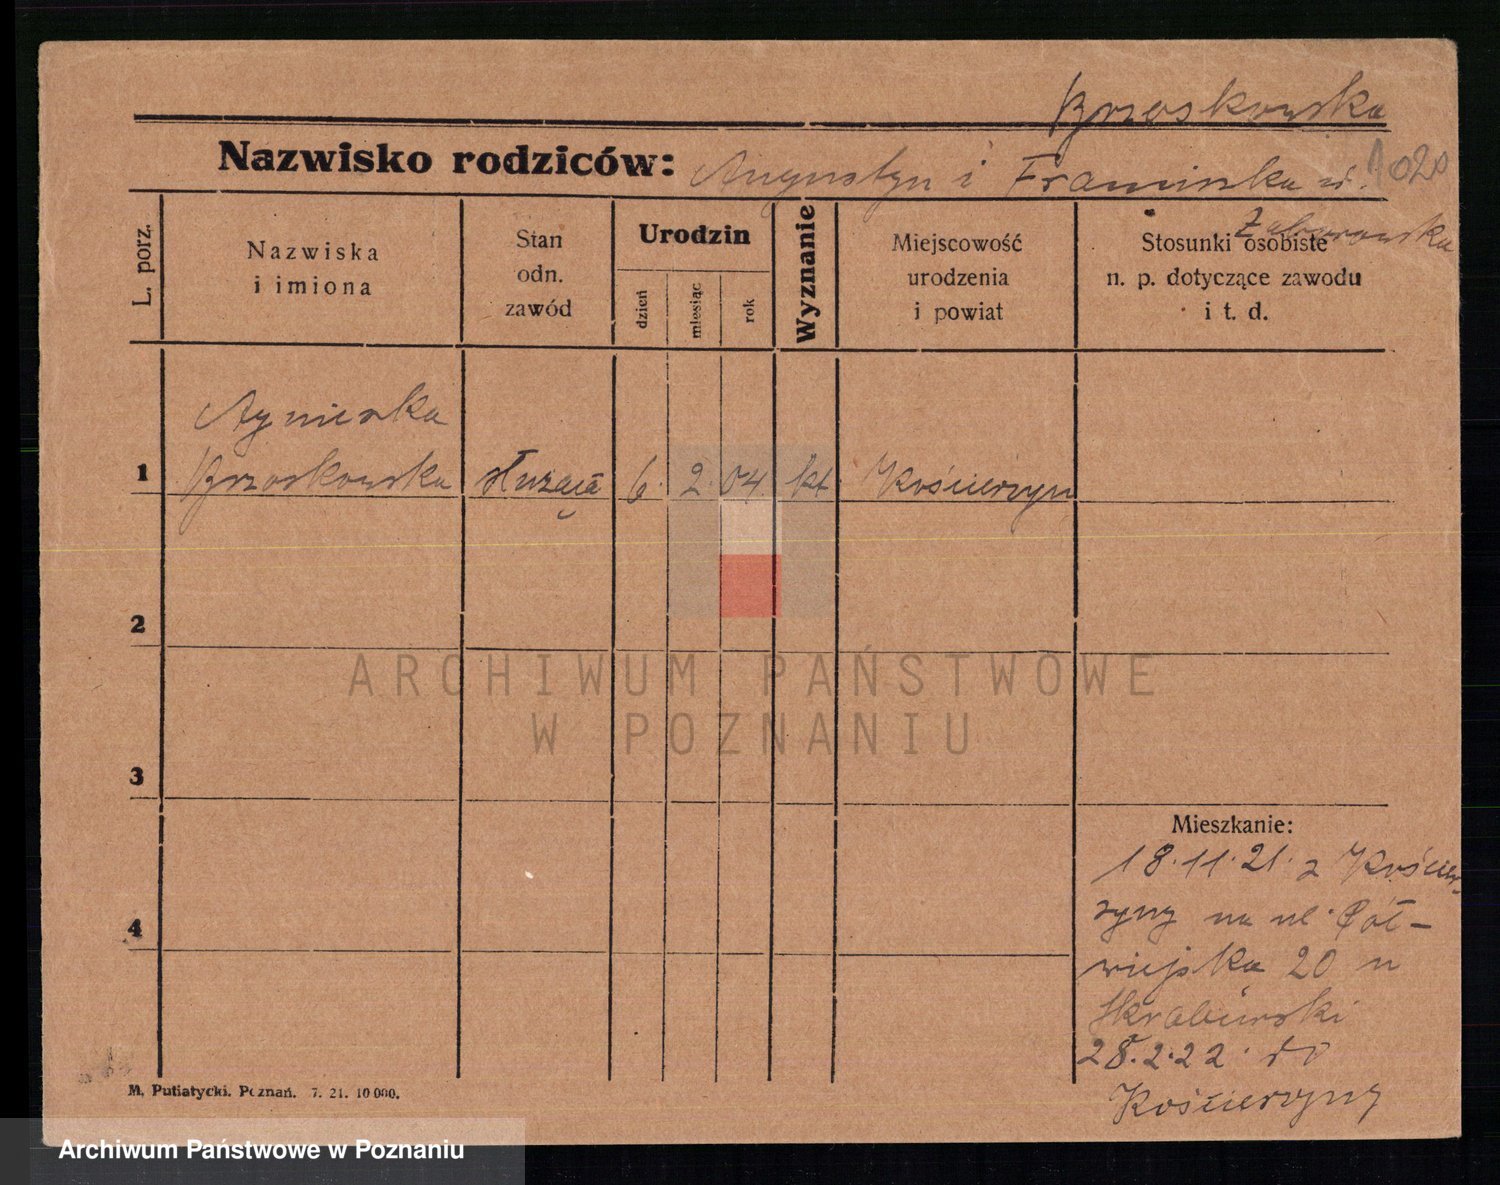 Brzoskowska
Nazwisko rodziców: Augustyn i Franciszka z d. 1020
Zaborowska
L. porz.
Nazwiska
i imiona
Stan
odn.
zawód
Urodzin
dzień
miesiąc
rok
Wyznanie
Miejscowość
urodzenia
i powiat
Stosunki osobiste
n. p. dotyczące zawodu
i t. d.
Agnieszka
1 Brzoskowska służąca 6. 2. 04. kt. Kościerzyn
2
3
4
ARCHIWUM PAŃSTWOWE
W POZNANIU
Mieszkanie:
18.11.21. z Kościer-
zyny na ul. Pół-
wiejska 20 u
28.2.22. do
Kościerzyny
M. Putiatycki. Poznań. 7. 21. 10 000.
Archiwum Państwowe w Poznaniu